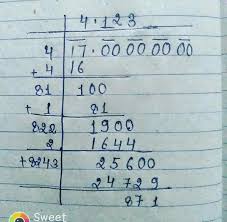 4.123
4 17.00 00 00 00
+4 16
81 100
+1 81
822 1900
2 1644
+8243 25600
24729
871
Sweet